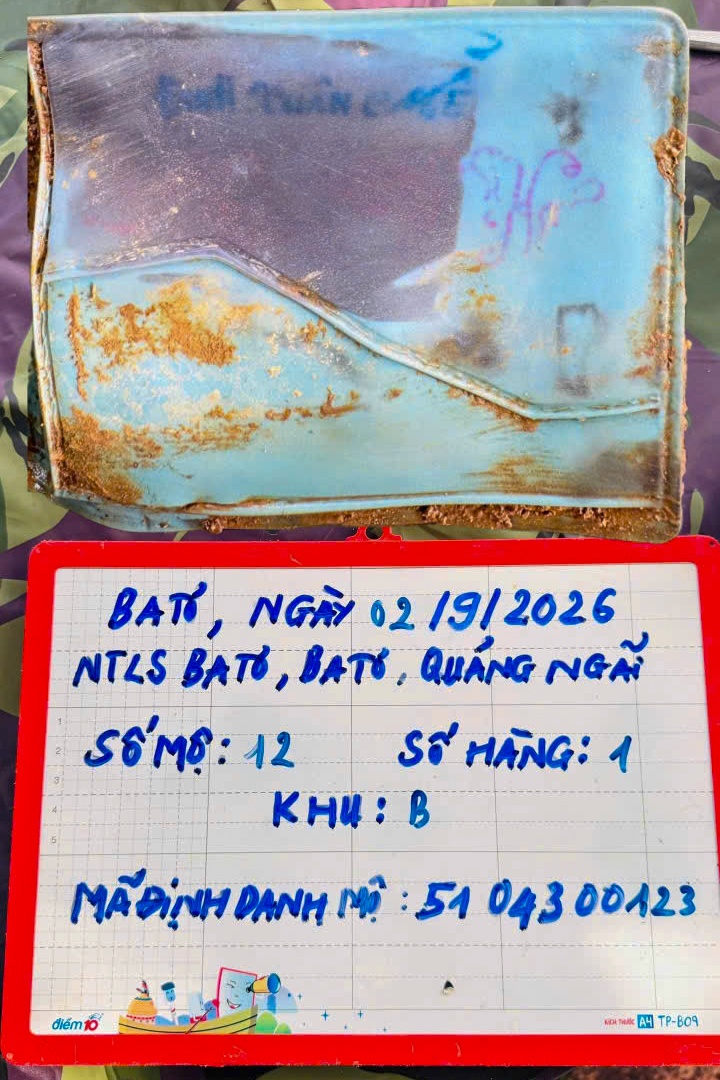 BATƠ, NGÀY 02/9/2026
NTLS BATƠ, BATƠ, QUẢNG NGÃI
SỐ MỘ: 12 SỐ HÀNG: 1
KHU: B
MÃ ĐỊNH DANH MỘ: 51 04300123
1
2
3
4
5
điểm 10
KÍCH THƯỚC A4 TP-B09